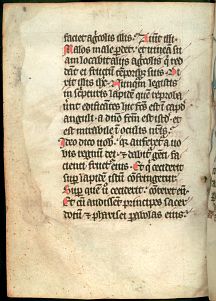 faciet agricolis illis. Aiunt illi.
Malos male perdet. et vineā su
am locabit aliis agricolis q̄ red
dāt ei fructū tēporib; suis. Di
xit illis ihc. Nunqm̄ legistis
in scripturis. lapidē quē reproba
uerūt edificantes. hic fc̄s est i capd
anguli. a dnō fc̄m est istd. et
est mirabile i oculis nr̄is.
Ideo dico uob. q̄ auferet a uo
bis regnū dei. et dabit gēti fa
cienti fruct; eius. Et q̄ cecidit
sup lapidē istū confringetur.
Sup quē ū ceciderit. conteret eū.
Et cū audissent principes sacer
dotū et pharisei parabolas eius.